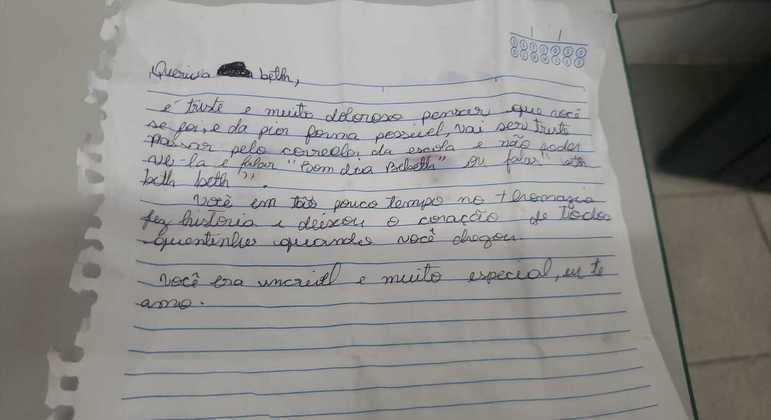 Querida beth,
é triste e muito doloroso pensar que você
se foi, e da pior forma possível, vai ser triste
passar pelo corredor da escola e não poder
ve-la e falar "Bom dia Bebeth" ou falar "eth
beth beth".
você em tão pouco tempo no thomazia
fez historia e deixou o coração de todos
quentinho quando você chegou.
você era incrivel e muito especial, eu te
amo.